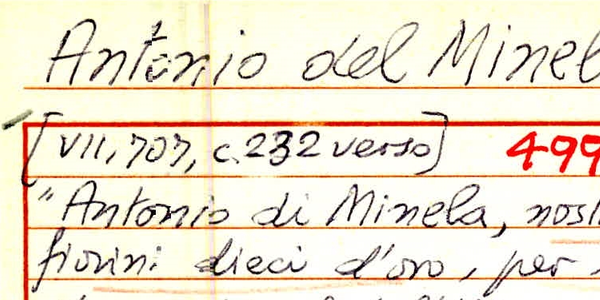 Antonio del Minel
[VII, 707, c. 232 verso] 499
"Antonio di Minela, nost
fiorini dieci d'oro, per